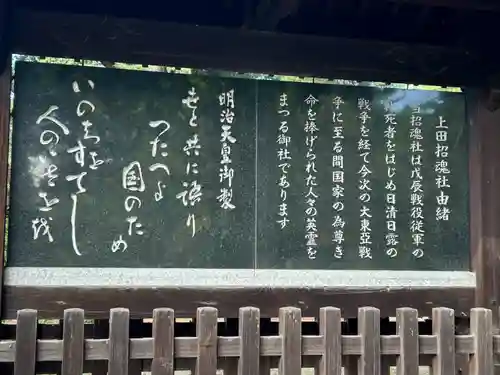 上田招魂社由緒
当招魂社は戊辰戦役従軍の
戦死者をはじめ日清日露の
戦争を経て今次の大東亞戦
争に至る間国家の為尊き
命を捧げられた人々の英霊を
まつる御社であります
明治天皇御製
世と共に語り
つたへよ
国のため
命をすてし
人のいさをを